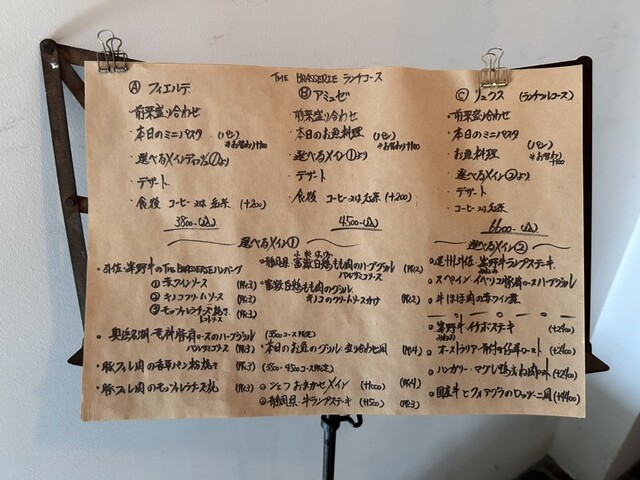 THE BRASSERIE ランチコース
Ⓐ フィエルテ
・前菜盛り合わせ
・本日のミニパスタ (パン)
※お替わり+100
・選べるメインディッシュ①より
・デザート
・食後 コーヒー又は紅茶 (+200)
3800-(込)
Ⓑ アミュゼ
・前菜盛り合わせ
・本日のお魚料理 (パン)
※お替わり+100
・選べるメイン①より
・デザート
・食後 コーヒー又は紅茶 (+200)
4500-(込)
Ⓒ リュクス (ランチフルコース)
・前菜盛り合わせ
・本日のミニパスタ
・お魚料理 (パン)
※お替わり+100
・選べるメイン②より
・デザート
・コーヒー又は紅茶
6600-(込)
選べるメイン①
THE BRASSERIEハンバーグ
① 赤ワインソース (税3)
② キノコクリームソース (税3)
③ モッツァレラチーズ焼き (税3)
トマトソース
・奥浜名湖・荒井豚肩ロースのハーブグリル
バルサミコソース (税3)
・豚フィレ肉の香草パン粉焼き (税3)
・豚フィレ肉のモッツァレラチーズ焼 (税3)
・静岡県・富嶽白鶏もも肉のハーブグリル
バルサミコソース (税2)
・富嶽白鶏もも肉のグリル
キノコのクリームソースかけ (税2)
(3800コース限定)
・本日のお魚のグリル 盛り合わせ風 (税4)
(3800・4500コース限定)
シェフおまかせメイン (+1000) (税4)
静岡県・牛ランプステーキ (+1500) (税3)
選べるメイン②
牛ランプステーキ
・スペイン・イベリコ豚肩ロースハーブグリル
・牛ほほ肉の赤ワイン煮
牛イチボステーキ (+2400)
オーストラリア・骨付き仔羊ロースト (+2400)
ハンガリー・マグレ鴨むね肉ロースト (+2400)
国産牛とフォアグラのロッシーニ風 (+4400)